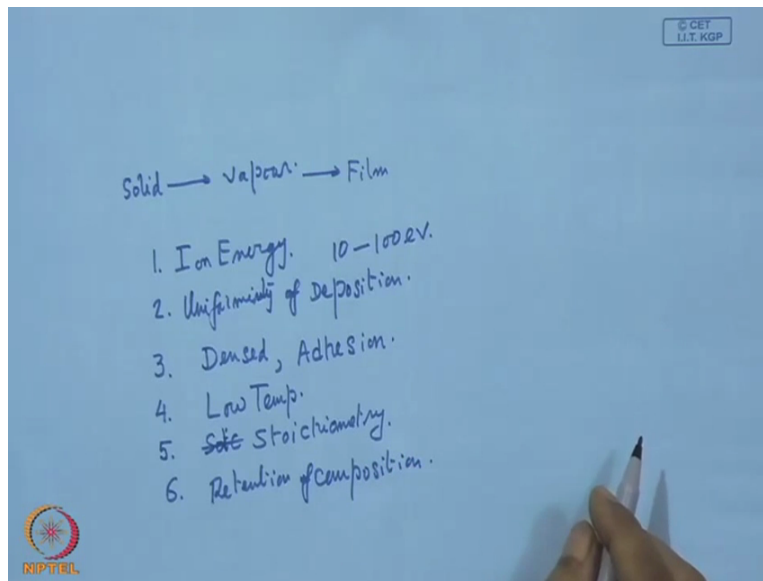 © CET
I.I.T. KGP
Solid → Vapour. → Film
1. Ion Energy. 10 - 100 eV.
2. Uniforminty of Deposition.
3. Densed, Adhesion.
4. Low Temp.
5. Stoichiometry.
6. Retention of composition.
NPTEL